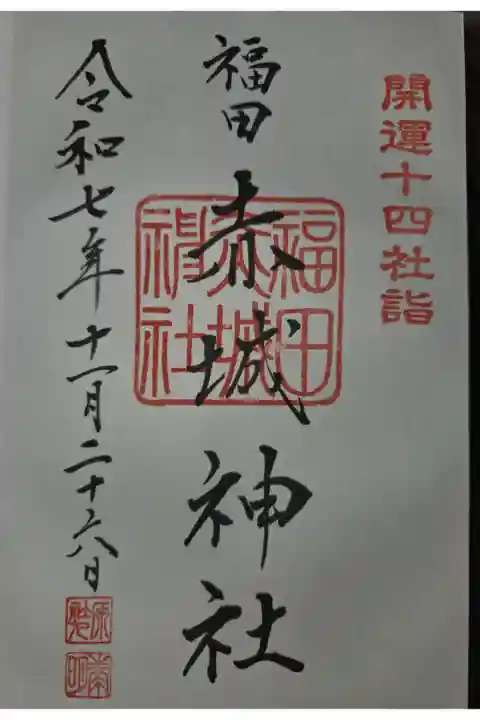 開運十四社詣
福田
赤城神社
福田
赤城
神社
令和七年十一月二十六日